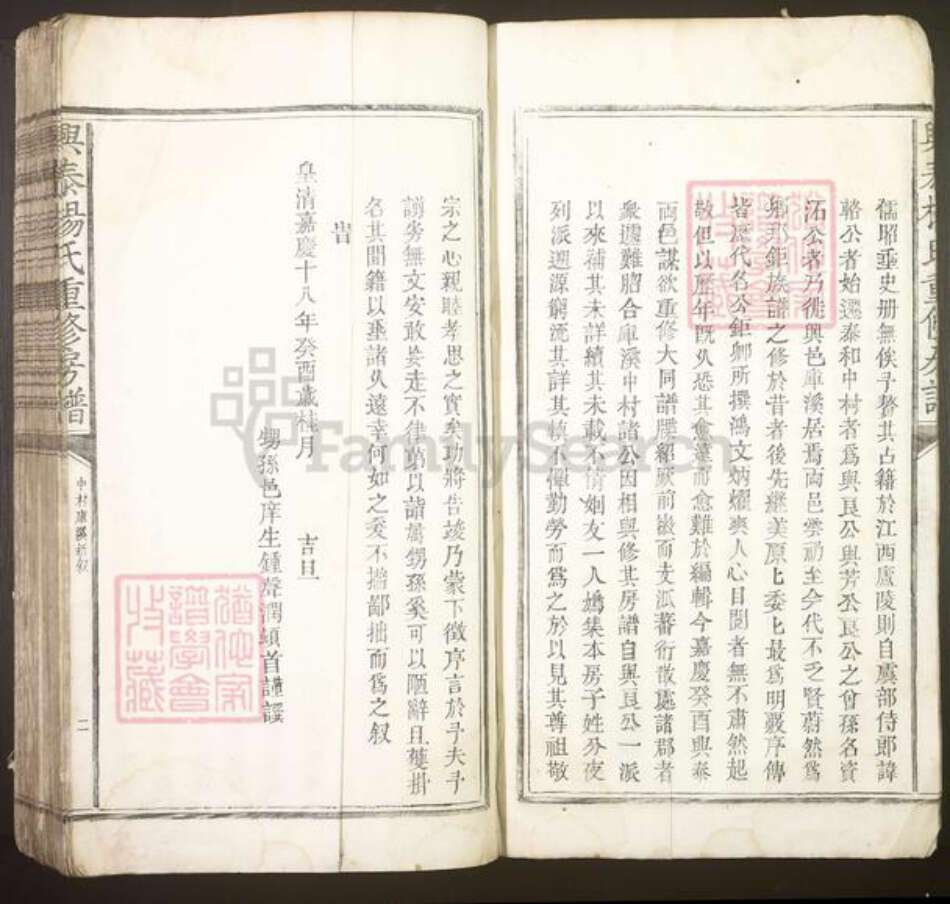 儒昭垂史册無俟予贅其占籍於江西廬陵則自虞部侍郎諱
輅公者始遷泰和中村者爲與艮公與芳公艮公之曾孫名資
滔公者乃徙興邑庫溪居焉兩邑雲礽至今代不乏賢蔚然爲
鄉邦鉅族譜之修於昔者後先繼美原上委上最爲明覈序傳
皆歷代名公鉅卿所撰鴻文炳燿爽人心目閱者無不肅然起
敬但以歷年既久恐其愈遠而愈難於編輯今嘉慶癸酉興泰
兩邑謀欲重修大同譜牒紹厥前徽而支派蕃衍散處諸郡者
衆遽難膠合庫溪中村諸公因相與修其房譜自與艮公一派
以來補其未詳續其未載不倩姻友一人嫣集本房子姓分夜
列派遡源窮流其詳其慎不憚勤勞而爲之於以見其尊祖敬
宗之心親睦孝思之實矣功將告竣乃蒙下徵序言於予夫予
謭劣無文安敢妄走不律第以誼屬甥孫奚可以陋辭且獲掛
名其間籍以垂諸久遠幸何如之爰不揣鄙拙而爲之叙
告
皇清嘉慶十八年癸酉歲桂月 吉旦
甥孫邑庠生鍾聲潤頓首謹譔
興泰楊氏重修房譜
中村庫溪新叙
二
猶他家
譜學會
收藏
FamilySearch